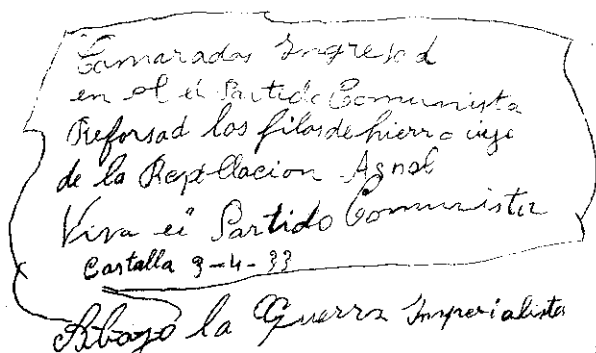 Camaradas Ingresad
en el ei Partido Comunista
Reforsad las filas de hierro
de la
Viva ei Partido Comunista
Castalla 9-4-33
Abajo la Guerra Imperialista